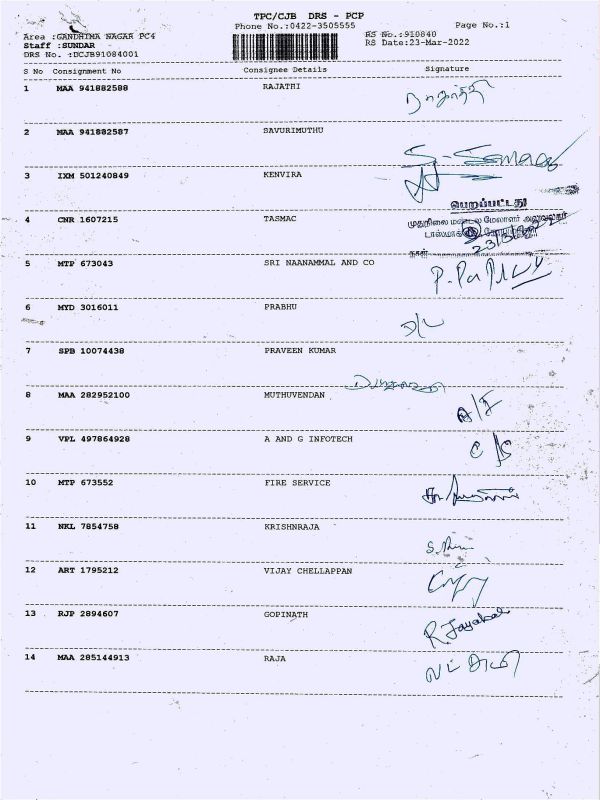 TPC/CJB DRS - PCP
Phone No.:0422-3505555 Page No.:1
Area :GANDHIMA NAGAR PC4 RS No.:910840
Staff :SUNDAR RS Date:23-Mar-2022
DRS No. :DCJB91084001
S No Consignment No Consignee Details Signature
1 MAA 941882588 RAJATHI
2 MAA 941882587 SAVURIMUTHU
3 IXM 501240849 KENVIRA
பெறப்பட்டது
4 CNR 1607215 TASMAC
முதுநிலை மண்டல மேலாளர் அலுவலகம்
நாள்
5 MTP 673043 SRI NAANAMMAL AND CO
6 MYD 3016011 PRABHU
7 SPB 10074438 PRAVEEN KUMAR
8 MAA 282952100 MUTHUVENDAN
9 VPL 497864928 A AND G INFOTECH
10 MTP 673552 FIRE SERVICE
11 NKL 7854758 KRISHNRAJA
12 ART 1795212 VIJAY CHELLAPPAN
13 RJP 2894607 GOPINATH
R. Jayabal
14 MAA 285144913 RAJA